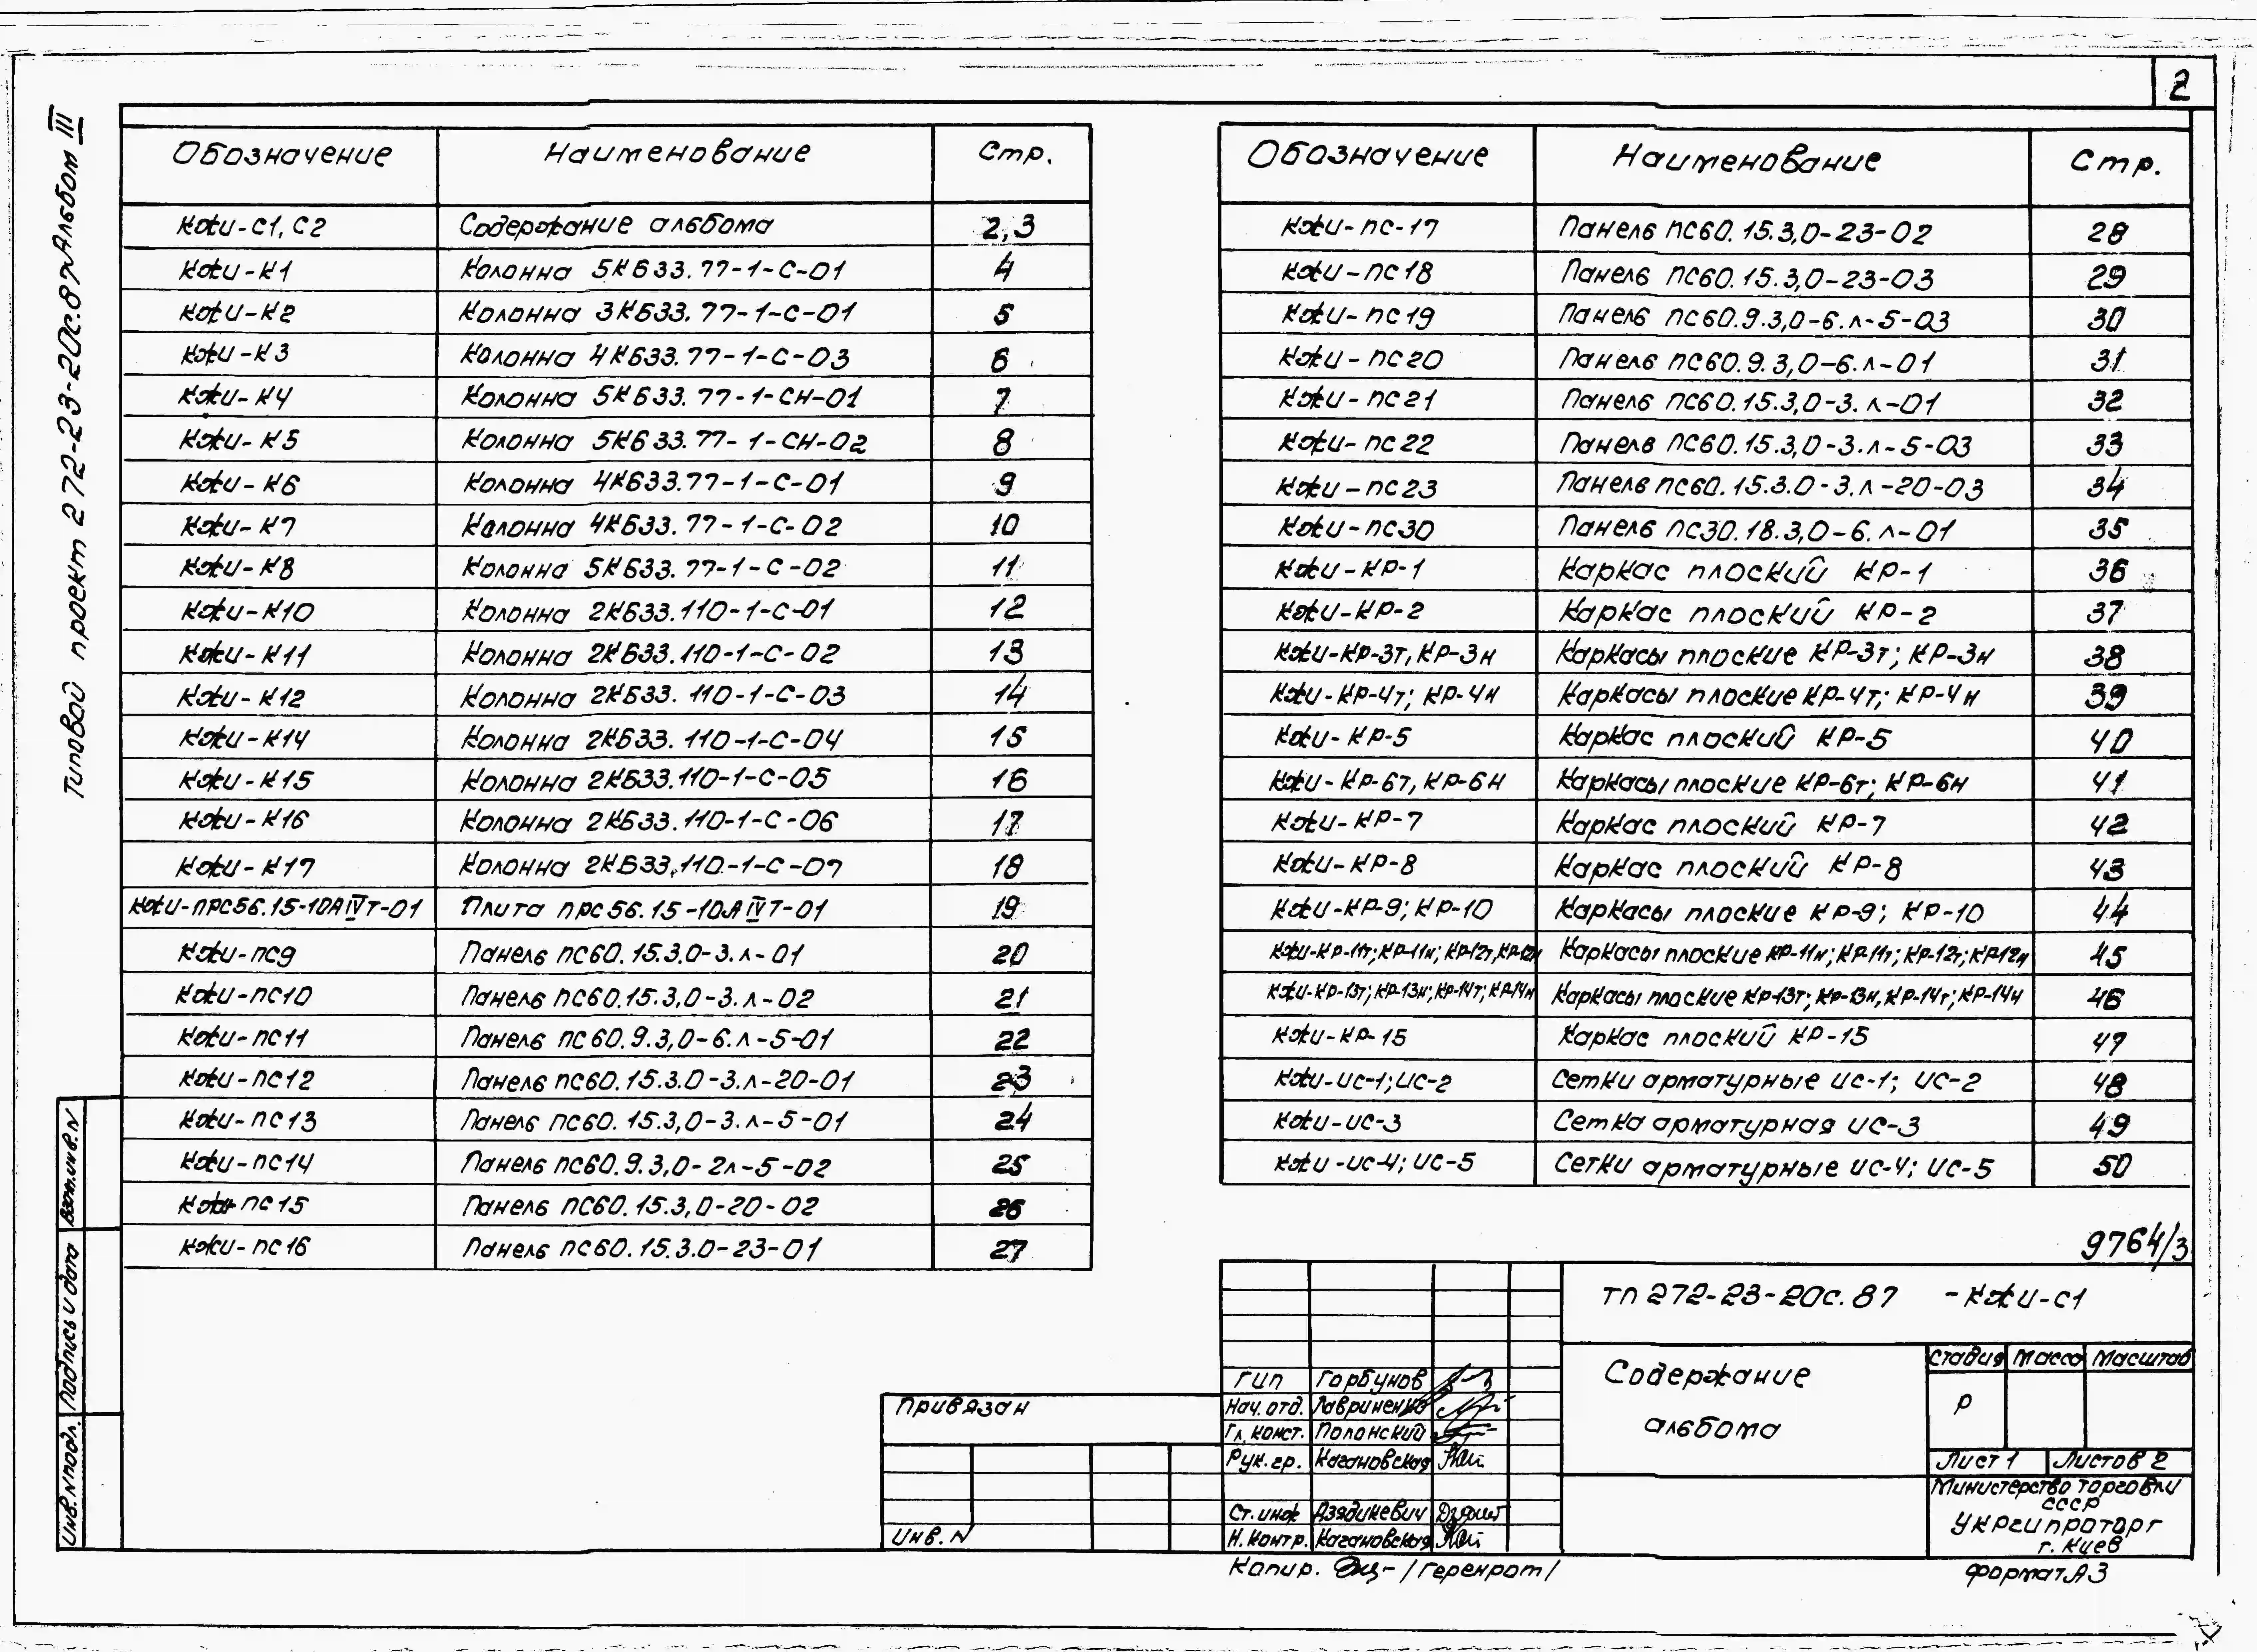 2
Типовой проект 272-23-20с.87 Альбом III
Обозначение Наименование Стр.
КЖИ-С1, С2 Содержание альбома 2,3
КЖИ-К1 Колонна 5КБ33.77-1-С-01 4
КЖИ-К2 Колонна 3КБ33.77-1-С-01 5
КЖИ-К3 Колонна 4КБ33.77-1-С-03 6
КЖИ-К4 Колонна 5КБ33.77-1-СН-01 7
КЖИ-К5 Колонна 5КБ33.77-1-СН-02 8
КЖИ-К6 Колонна 4КБ33.77-1-С-01 9
КЖИ-К7 Колонна 4КБ33.77-1-С-02 10
КЖИ-К8 Колонна 5КБ33.77-1-С-02 11
КЖИ-К10 Колонна 2КБ33.110-1-С-01 12
КЖИ-К11 Колонна 2КБ33.110-1-С-02 13
КЖИ-К12 Колонна 2КБ33.110-1-С-03 14
КЖИ-К14 Колонна 2КБ33.110-1-С-04 15
КЖИ-К15 Колонна 2КБ33.110-1-С-05 16
КЖИ-К16 Колонна 2КБ33.110-1-С-06 17
КЖИ-К17 Колонна 2КБ33.110-1-С-07 18
КЖИ-ПРС56.15-10АIVТ-01 Плита ПРС56.15-10АIVТ-01 19
КЖИ-ПС9 Панель ПС60.15.3.0-3.Л-01 20
КЖИ-ПС10 Панель ПС60.15.3,0-3.Л-02 21
КЖИ-ПС11 Панель ПС60.9.3,0-6.Л-5-01 22
КЖИ-ПС12 Панель ПС60.15.3.0-3.Л-20-01 23
КЖИ-ПС13 Панель ПС60.15.3,0-3.Л-5-01 24
КЖИ-ПС14 Панель ПС60.9.3,0-2Л-5-02 25
КЖИ-ПС15 Панель ПС60.15.3,0-20-02 26
КЖИ-ПС16 Панель ПС60.15.3.0-23-01 27
Обозначение Наименование Стр.
КЖИ-ПС-17 Панель ПС60.15.3,0-23-02 28
КЖИ-ПС18 Панель ПС60.15.3,0-23-03 29
КЖИ-ПС19 Панель ПС60.9.3,0-6.Л-5-03 30
КЖИ-ПС20 Панель ПС60.9.3,0-6.Л-01 31
КЖИ-ПС21 Панель ПС60.15.3,0-3.Л-01 32
КЖИ-ПС22 Панель ПС60.15.3,0-3.Л-5-03 33
КЖИ-ПС23 Панель ПС60.15.3.0-3.Л-20-03 34
КЖИ-ПС30 Панель ПС30.18.3,0-6.Л-01 35
КЖИ-КР-1 Каркас плоский КР-1 36
КЖИ-КР-2 Каркас плоский КР-2 37
КЖИ-КР-3т, КР-3н Каркасы плоские КР-3т; КР-3н 38
КЖИ-КР-4т; КР-4н Каркасы плоские КР-4т; КР-4н 39
КЖИ-КР-5 Каркас плоский КР-5 40
КЖИ-КР-6т, КР-6н Каркасы плоские КР-6т; КР-6н 41
КЖИ-КР-7 Каркас плоский КР-7 42
КЖИ-КР-8 Каркас плоский КР-8 43
КЖИ-КР-9; КР-10 Каркасы плоские КР-9; КР-10 44
КЖИ-КР-11т; КР-11н; КР-12т, КР-12н Каркасы плоские КР-11н; КР-11т; КР-12т; КР-12н 45
КЖИ-КР-13т; КР-13н; КР-14т; КР-14н Каркасы плоские КР-13т; КР-13н, КР-14т; КР-14н 46
КЖИ-КР-15 Каркас плоский КР-15 47
КЖИ-ИС-1; ИС-2 Сетки арматурные ИС-1; ИС-2 48
КЖИ-ИС-3 Сетка арматурная ИС-3 49
КЖИ-ИС-4; ИС-5 Сетки арматурные ИС-4; ИС-5 50
9764/3
ТП 272-23-20с.87 -КЖИ-С1
Содержание
альбома
Стадия Масса Масштаб
Р
Лист 1 Листов 2
Министерство торговли
СССР
Укргипроторг
г. Киев
ГИП Горбунов
Нач. отд. Лавриненко
Гл. конст. Полонский
Рук. гр. Кагановская
Ст. инж Дзядикевич
Н. контр. Кагановская
Привязан
Инв. N
Взам.инв.N
Подпись и дата
Инв.Nподл.
Копир. /Геренрот/
Формат А3